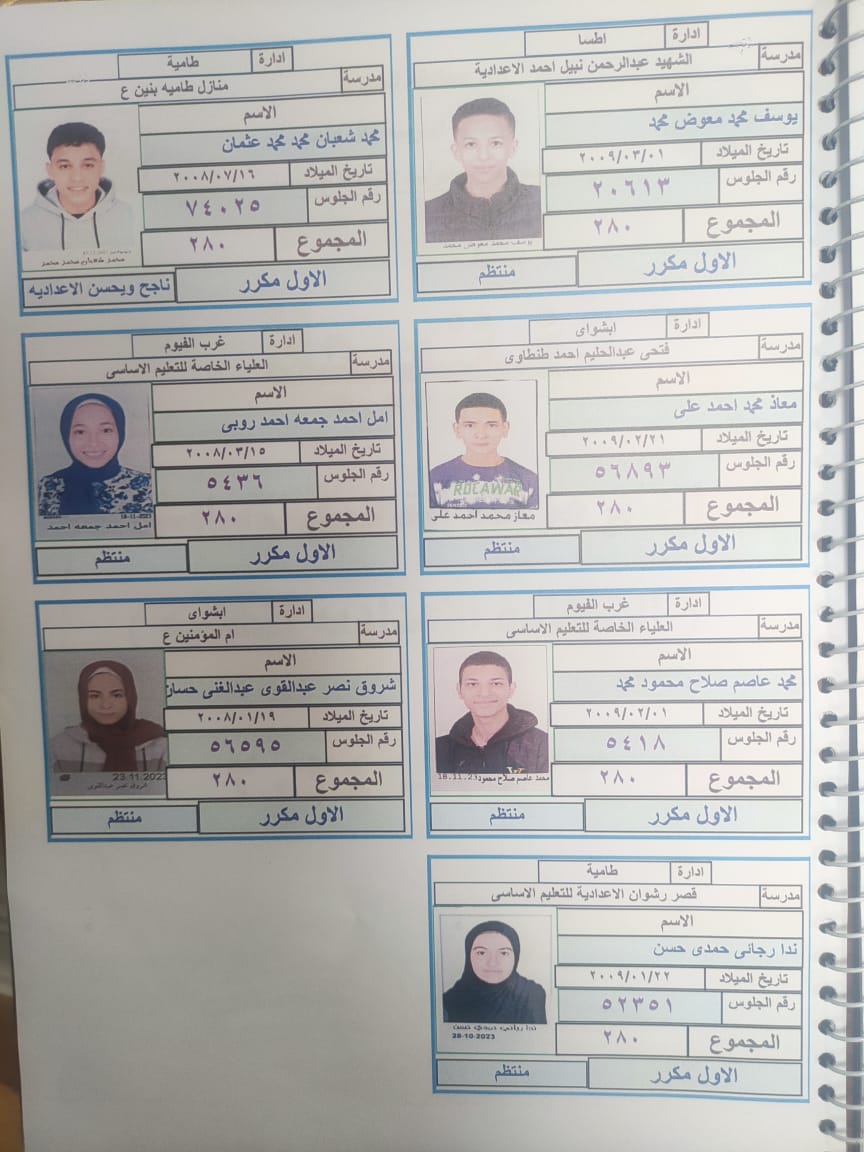 ادارة اطسا
مدرسة الشهيد عبدالرحمن نبيل احمد الاعدادية
الاسم
يوسف محمد معوض محمد
تاريخ الميلاد ٢٠٠٩/٠٣/٠١
رقم الجلوس ٢٠٦١٣
المجموع ٢٨٠
يوسف محمد معوض محمد
الاول مكرر منتظم
ادارة طامية
مدرسة منازل طاميه بنين ع
الاسم
محمد شعبان محمد محمد عثمان
تاريخ الميلاد ٢٠٠٨/٠٧/١٦
رقم الجلوس ٧٤٠٢٥
المجموع ٢٨٠
محمد شعبان محمد محمد
الاول مكرر ناجح ويحسن الاعداديه
ادارة ابشواى
مدرسة فتحى عبدالحليم احمد طنطاوى
الاسم
معاذ محمد احمد على
تاريخ الميلاد ٢٠٠٩/٠٢/٢١
رقم الجلوس ٥٦٨٩٣
ROCAWAR
المجموع ٢٨٠
معاذ محمد أحمد على
الاول مكرر منتظم
ادارة غرب الفيوم
مدرسة العلياء الخاصة للتعليم الاساسى
الاسم
امل احمد جمعه احمد روبى
تاريخ الميلاد ٢٠٠٨/٠٣/١٥
رقم الجلوس ٥٤٣٦
المجموع ٢٨٠
18-11-2023
امل احمد جمعه احمد
الاول مكرر منتظم
ادارة غرب الفيوم
مدرسة العلياء الخاصة للتعليم الاساسى
الاسم
محمد عاصم صلاح محمود محمد
تاريخ الميلاد ٢٠٠٩/٠٢/٠١
رقم الجلوس ٥٤١٨
المجموع ٢٨٠
محمد عاصم صلاح محمود 18.11.23
الاول مكرر منتظم
ادارة ابشواى
مدرسة ام المؤمنين ع
الاسم
شروق نصر عبدالقوى عبدالغنى حسان
تاريخ الميلاد ٢٠٠٨/٠١/١٩
رقم الجلوس ٥٦٥٩٥
المجموع ٢٨٠
23.11.2023
شروق نصر عبدالقوى
الاول مكرر منتظم
ادارة طامية
مدرسة قصر رشوان الاعدادية للتعليم الاساسى
الاسم
ندا رجائى حمدى حسن
تاريخ الميلاد ٢٠٠٩/٠١/٢٢
رقم الجلوس ٥٢٣٥١
المجموع ٢٨٠
28-10-2023
الاول مكرر منتظم